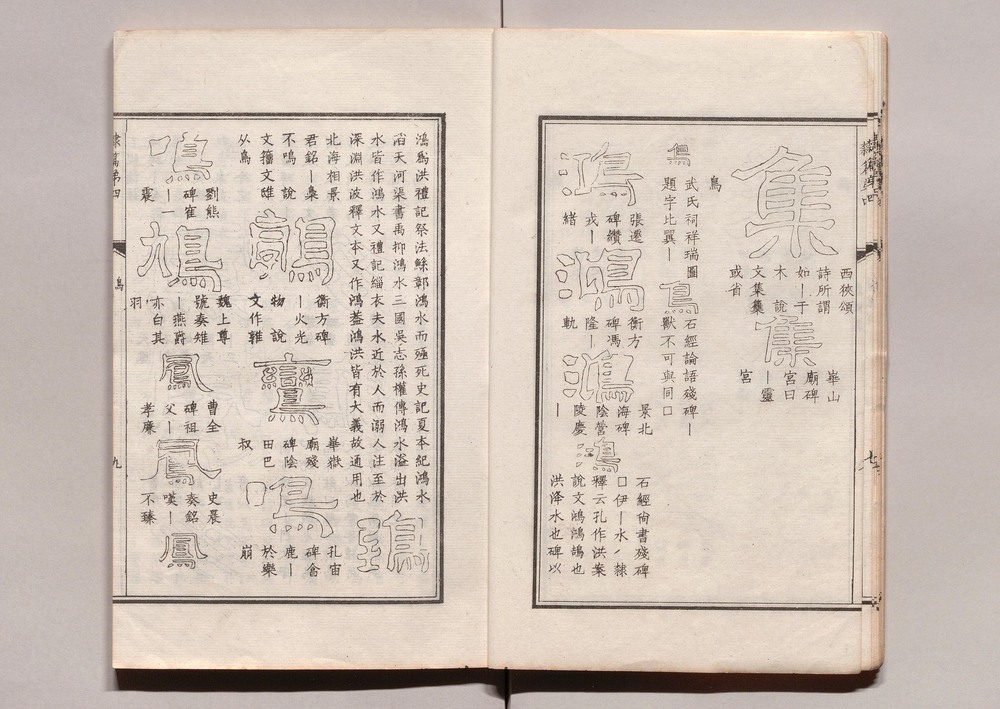 集
西狹頌
詩所謂
如丨于
木 說
文集集
或省
集
崋山
廟碑
宮曰
丨靈
宮
鳥
鳥
武氏祠祥瑞圖
題字比翼丨
鳥
石經論語殘碑丨
獸不可與同囗
鴻
張遷
碑纘
戎丨
緒
鴻
衡方
碑馮
隆丨
軌
鴻
景北
海碑
陰營
陵慶
丨
鴻
石經尚書殘碑
囗伊丨水〻隸
釋云孔作洪案
說文鴻鴻鵠也
洪洚水也碑以
鴻為洪禮記祭法鯀鄣鴻水而殛死史記夏本紀鴻水
滔天河渠書禹抑鴻水三國吳志孫權傳鴻水溢出洪
水皆作鴻水又禮記緇衣夫水近於人而溺人注至於
深淵洪波釋文本又作鴻葢鴻洪皆有大義故通用也
鵄
北海相景
君銘丨梟
不鳴 說
文籀文雎
从鳥
鶉
衡方碑
丨火光
物 說
文作
鸞
崋嶽
廟殘
碑陰
田巴
叔
鳴
孔宙
碑會
鹿丨
於樂
崩
鳴
劉熊
碑崔
丨一
震
鳩
魏上尊
號奏雉
丨燕爵
亦白其
羽
鳳
曹全
碑祖
父丨
孝廉
鳳
史晨
奏銘
嘆丨
不臻
鳳
隸篇第四
鳥
九